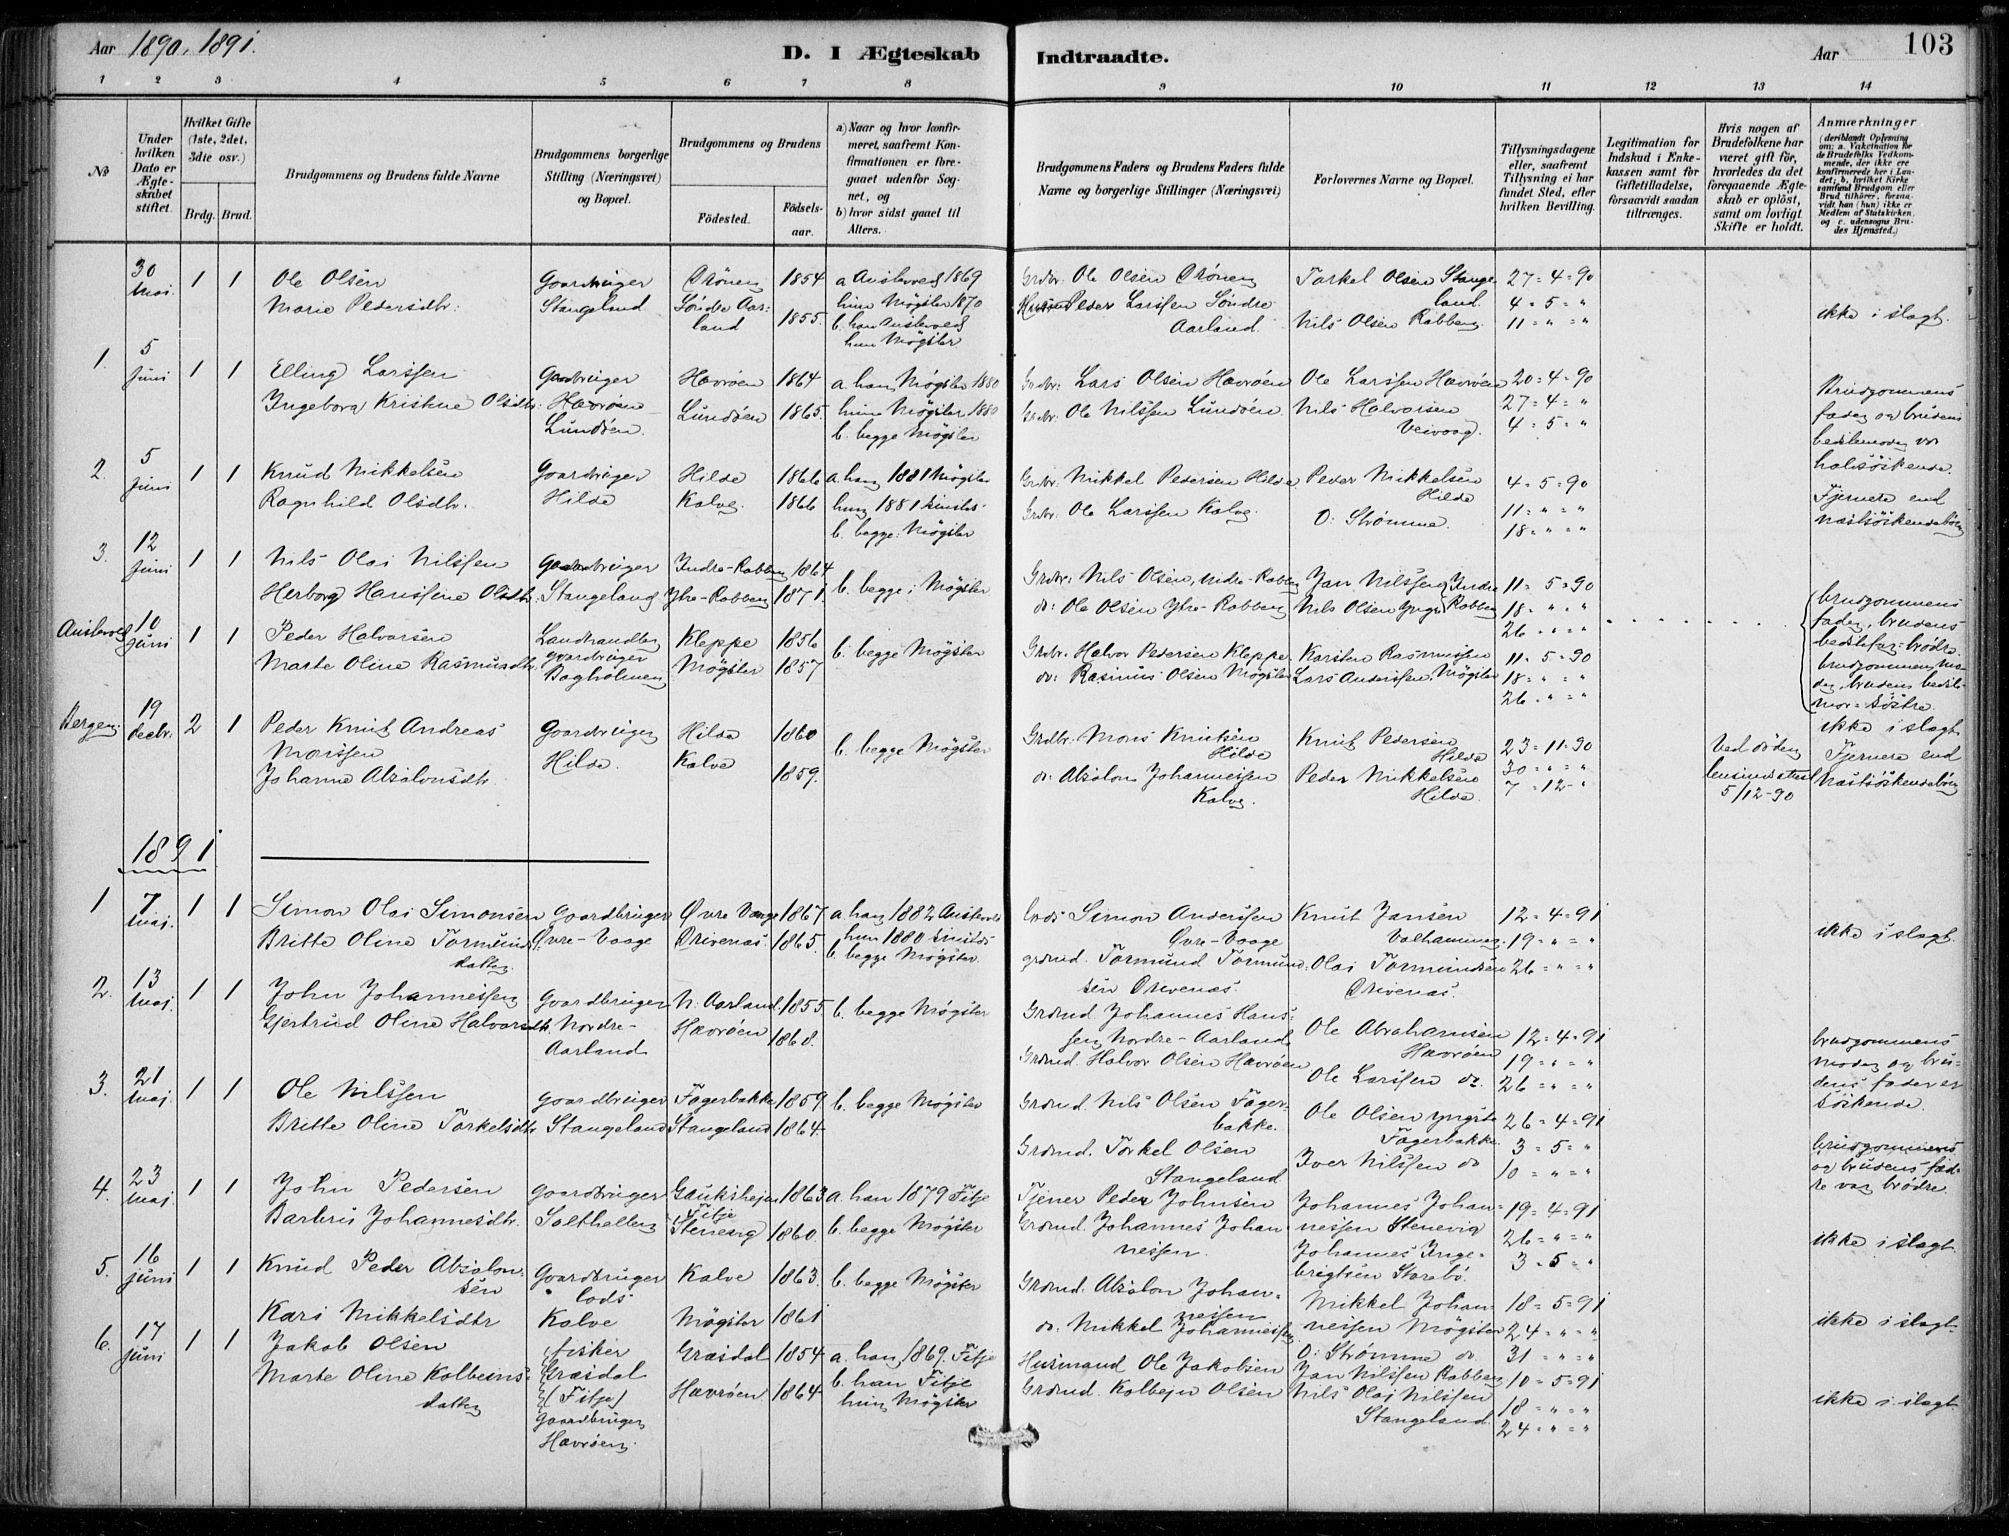 Aar 1890, 1891.
D. I Ægteskab Indtraadte.
Aar
103
1 2 3 4 5 6 7 8 9 10 11 12 13 14
No
Under hvilken Dato er Ægteskabet stiftet.
Hvilket Gifte (1ste, 2det, 3die osv.)
Brdg. Brud.
Brudgommens og Brudens fulde Navne
Brudgommens borgerlige Stilling (Næringsvei) og Bopæl.
Brudgommens og Brudens
Födested. Födsels-aar.
a) Naar og hvor konfirmeret, saafremt Konfirmationen er foregaaet udenfor Sognet, og
b) hvor sidst gaaet til Alters.
Brudgommens Faders og Brudens Faders fulde Navne og borgerlige Stillinger (Næringsvei)
Forlovernes Navne og Bopæl.
Tillysningsdagene eller, saafremt Tillysning ei har fundet Sted, efter hvilken Bevilling.
Legitimation for Indskud i Enkekassen samt for Giftetilladelse, forsaavidt saadan tiltrænges.
Hvis nogen af Brudefolkene har været gift för, hvorledes da det foregaaende Ægteskab er oplöst, samt om lovligt Skifte er holdt.
Anmærkninger
30 Mai. 1 1
Ole Olsen
Marie Pedersdtr.
Gaardbruger
Stangeland
Söndre Aarland
1854
1855.
a Austevold 1869
hun Møgster 1870
b. han Austevold
hun Møgster
Ole Olsen
Peder Larssen Søndre Aarland
Torkel Olsen Stangeland.
Nils Olsen Rabben.
27=4=90
4=5="
11="="
ikke i slægt.
1. 5 Juni 1 1
Elling Larssen
Ingeborg Kristine Olsdtr.
Gaardbruger
Havrøen
Lundøen.
Havrøen 1864
Lundøen 1865.
a. han Møgster 1880
hun Møgster 1880
b. begge Møgster
Grdbr: Lars Olsen Havrøen
Grdbr. Ole Nilssen Lundøen
Ole Larssen Havrøen
Nils Halvorsen
20=4=90
27=4="
4=5="
Brudgommens
fader og brudens
bedstemoder var
halvsøskende.
2. 5 Juni 1 1
Knud Mikkelsen
Ragnhild Olsdtr.
Gaardbruger
Hilde
Hilde 1866
Kalve. 1866
a. han 1881 Møgster
hun 1881
b. begge: Møgster
Grdbr. Mikkel Pedersen Hilde
Grdbr. Ole Larssen Kalve.
Peder Mikkelsen
Hilde
O. Strømme.
4=5=90
11="="
18="="
Fjernere end
næstsøskendebørn
3. 12 Juni 1 1
Nils Olai Nilssen
Herborg Hansine Olsdtr.
Gaardbruger
Stangeland
Indre-Rabben 1864
Ytre-Rabben 1871.
b. begge: Møgster
Grdbr: Nils Olsen, indre-Rabben
do: Ole Olsen Ytre-Rabben
Jan Nilssen Indre
Nils Olsen Yngre Rabben
11=5=90
18="="
26="="
brudgommens
fader, brudens
bedstefar = brødre.
brudgommens mo-
der, brudens bedste-
mor = søstre.
Austevold 10 Juni 1 1
Peder Halvorsen
Marte Oline Rasmusdtr.
Landhandler
gaardbruger
Bagholmen
Kleppe 1856
Møgster 1857
b. begge Møgster
Grdbr. Halvor Pedersen Kleppe.
do: Rasmus Olsen Møgster
Karsten Rasmussen
Lars Anderssen, Møgster
11=5=90
18="="
26="="
ikke i slægt
Bergen. 19 decbr. 2 1
Peder Knut Andreas
Monssen
Johanne Absalonsdtr.
Gaardbruger
Hilde.
Hilde 1860
Kalve 1859.
b. begge Møgster
Grdbr. Mons Knutsen
Hilde
do: Absalon Johannessen
Kalve.
Knut Pedersen
Hilde
Peder Mikkelsen
Hilde.
23=11=90
30="="
7=12="
Ved døden
5/12-90
Fjernere end
næstsøskendebørn
1891
1 7 Maj. 1 1
Simon Olai Simonsen
Britte Oline Tormunds
datter.
Gaardbruger
Øvre-Vaage
Øvre Vaage 1867
Drivenas. 1865.
a. han 1882 Austevold
hun 1880
b. begge Møgster.
Lods Simon Anderssen
Øvre-Vaage
grdmd. Tormund Tormund-
sen Drivenas.
Knut Jansen
Valhammer.
Olai Tormundsen
Drivenas.
12=4=91
19="="
26="="
ikke i slægt.
2. 13 Maj. 1 1
John Johannessen
Gjertrud Oline Halvorsdtr.
Gaardbruger
Nordre-
Aarland
N. Aarland 1855.
Havrøen 1868.
b. begge Møgster
Grdmd. Johannes Hans-
sen Nordre-Aarland
Grdmd. Halvor Olsen Havrøen
Ole Abrahamsen
Havrøen
Ole Larssen do.
12=4=91
19="="
26="="
brudgommens
moder og bru-
dens fader er
søskende.
3. 21 Maj. 1 1
Ole Nilssen
Britte Oline Torkelsdtr
gaardbruger
Stangeland
Fagerbakke 1859
Stangeland 1864.
b. begge Møgster
Grdmd. Nils Olsen Fager-
bakke.
Grdmd. Torkel Olsen
Stangeland
Ole Olsen yngste
Fagerbakke.
Iver Nilssen do
26=4=91
3=5="
10="="
brudgommens
og brudens fæd-
re var brødre.
4. 23 Maj. 1 1
John Pedersen
Barbru Johannesdtr.
Gaardbruger
Salthellen
Gaukshejm 1863
Fitje
Stenevig 1860
a. han 1879 Fitje
b. begge Møgster
Tjener Peder Johnsen
Grdmd. Johannes Johan-
nessen.
Johannes Johan-
nessen Stenevig
Johannes Inge-
brigtsen Storebø.
19=4=91
26="="
3=5="
ikke i slægt.
5. 16 juni 1 1
Knud Peder Absalon-
sen
Kari Mikkelsdtr
Gaardbruger
Lods
Kalve
Kalve 1863.
Møgster 1861
b. begge Møgster
Grdmd. Absalon Johan-
nessen
do. Mikkel Johannessen
Mikkel Johan-
nessen Møgster
O. Strømme do.
18=5=91
24="="
31="="
ikke i slægt.
6. 17 juni 1 1
Jakob Olsen
Marte Oline Kolbeins-
datter
fisker
Græsdal
(Fitje)
Gaardbruger
Havrøen.
Græsdal 1854
Havrøen 1864
a. han 1869. Fitje
b. han Fitje
hun Møgster
Husmand Ole Jakobsen
Grdmd. Kolbejn Olsen
Jan Nilssen Rabben
Nils Olaj Nilssen
Stangeland.
10=5=91
18="="
24="="
ikke i slægt.